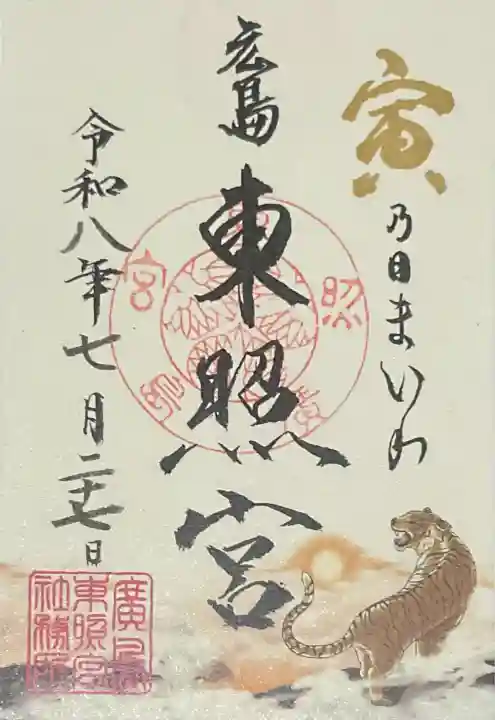 寅
乃日まいり
広島
東照宮
令和八年七月二十七日
廣島
東照宮
社務所